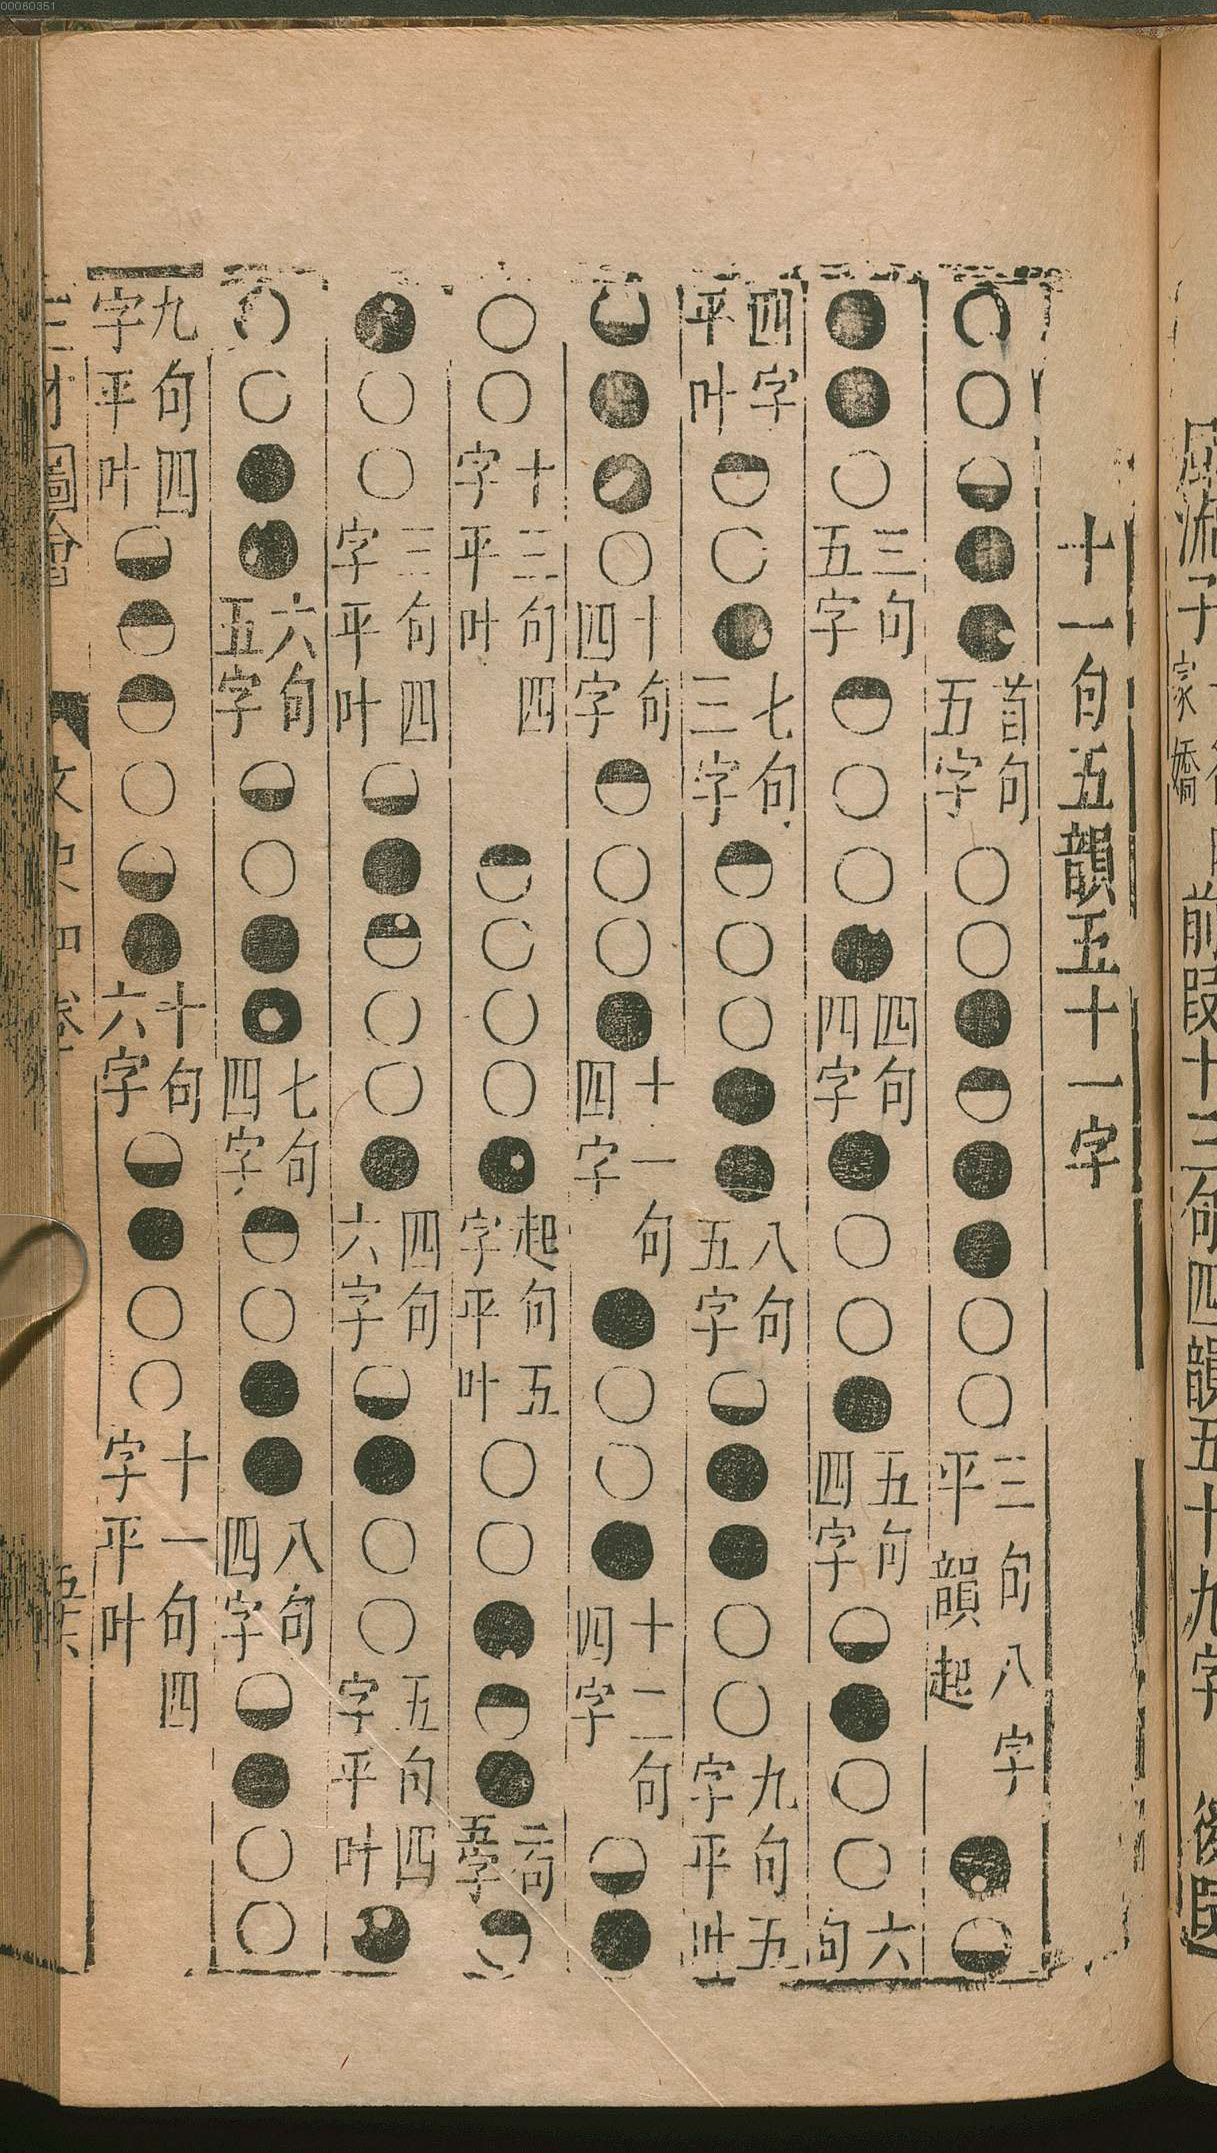 00060351
風流子
前段十三句四韻五十九字 後段
十一句五韻五十一字
首句五字 三句八字平韻起
三句五字 四句四字 五句四字 六句
四字平叶 七句三字 八句五字 九句五字平叶
十句四字 十一句四字 十二句四字
十三句四字平叶 起句五字平叶 二句五字
三句四字平叶 四句六字 五句四字平叶
六句五字 七句四字 八句四字
九句四字平叶 十句六字 十一句四字平叶
三才圖會 文史四卷